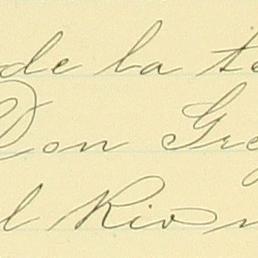 de la te
Don Gre
l Rio n